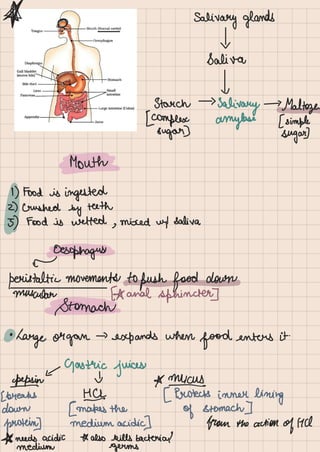 Salivary glands
Tongue
Mouth (Buccal cavity)
Oesophagus
Saliva
Diaphragm
Gall bladder
(stores bile)
Bile duct
Liver
Pancreas
Appendix
Stomach
Small
intestine
Large intestine (Colon)
Anus
Starch → Salivary → Maltose
[complex amylase [simple
sugar] sugar]
Mouth
1) Food is ingested
2) Crushed by teeth
3) Food is wetted, mixed w/ saliva
Oesophagus
peristaltic movements to push food down
muscular [* anal sphincter]
Stomach
• Large organ → expands when food enters it
Gastric juices
pepsin HCl * mucus
[breaks [makes the [Protects inner lining
down medium acidic] of stomach]
protein] from the action of HCl
* needs acidic * also kills bacteria/
medium germs